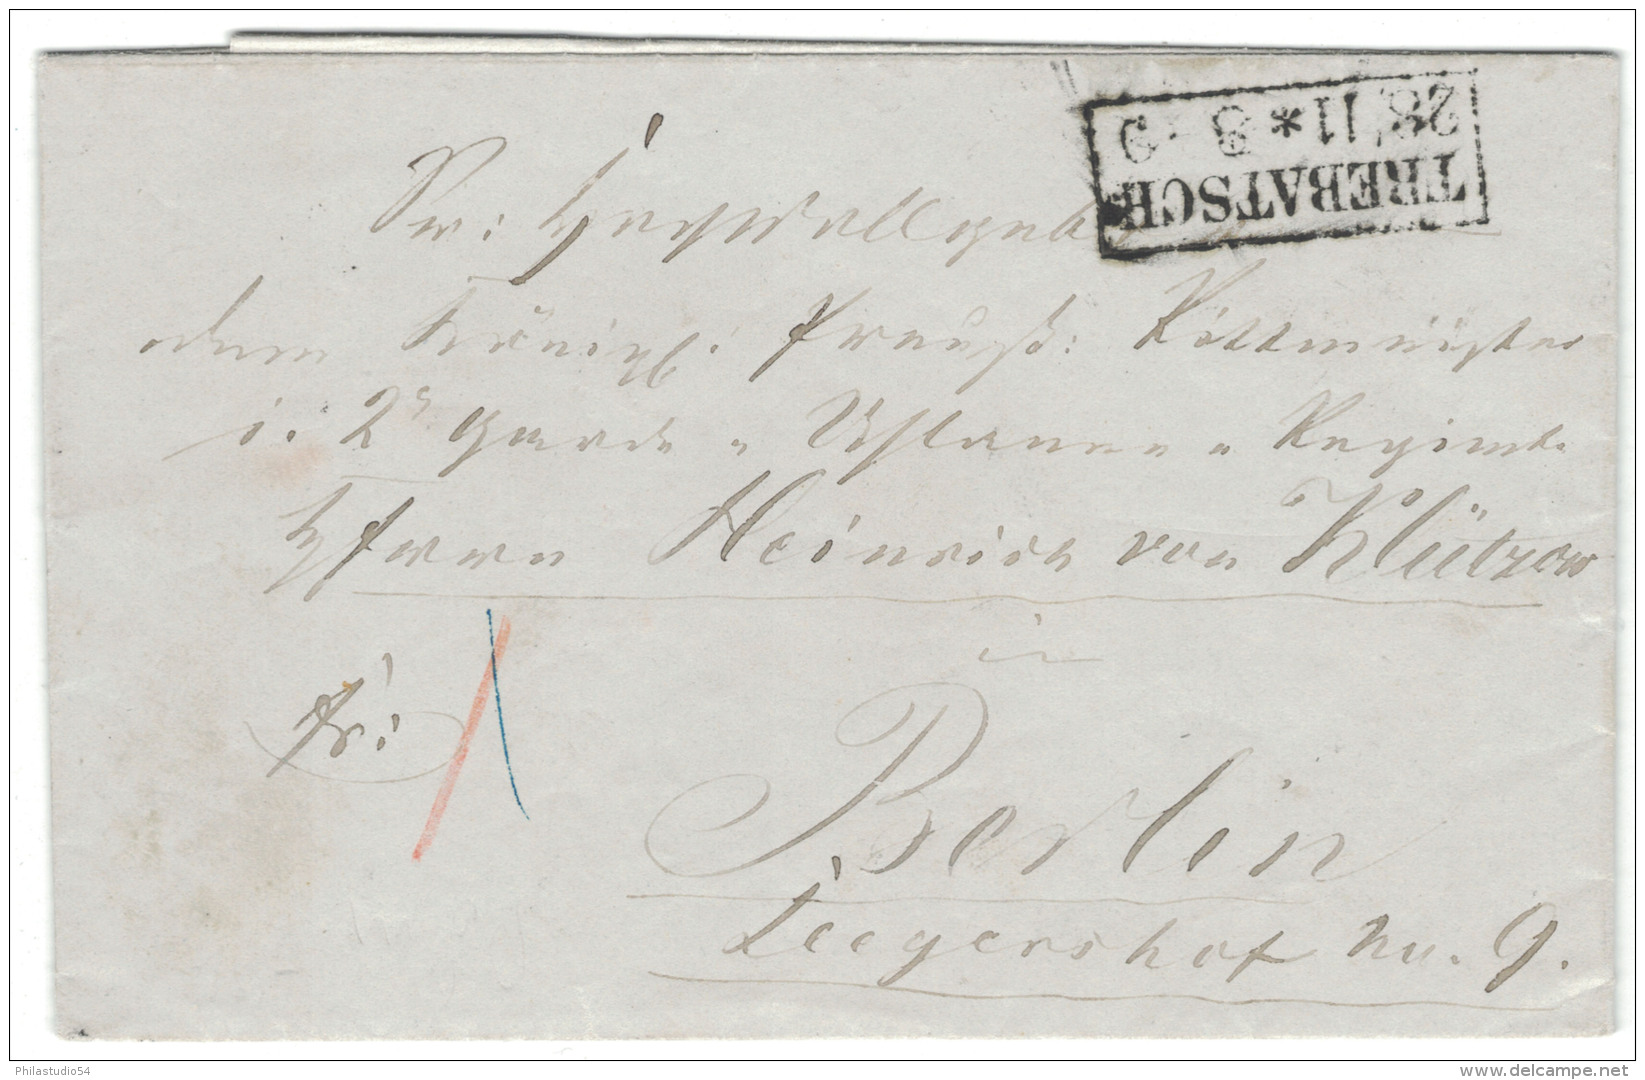 TREBATSCH
28 11 * 8 - 9
Sr: Hochwohlgeb
dem Königl: Preuß: Rittmeister
i. 2r Garde " Uhlanen " Regimt.
Herrn Heinrich von Klützow
in
fr:
Berlin
Leegershof No. 9.
Philastudio54
www.delcampe.net